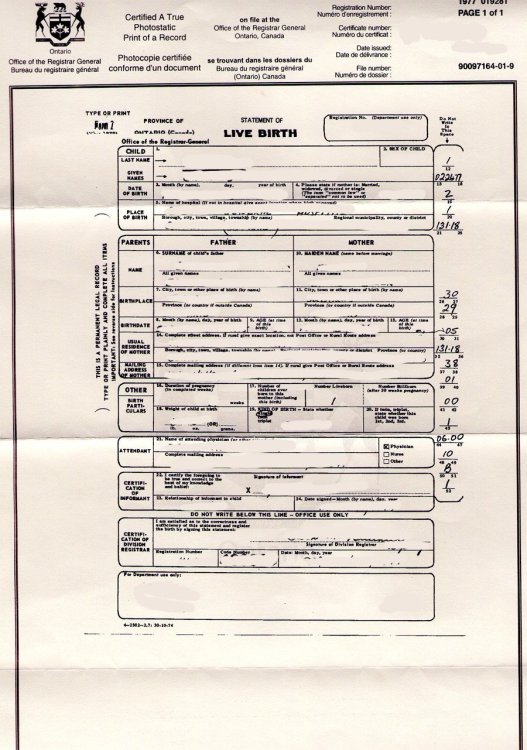 Certified A True
Photostatic
Print of a Record
Photocopie certifiée
conforme d'un document
on file at the
Office of the Registrar General
Ontario, Canada
se trouvant dans les dossiers du
Bureau du registraire général
(Ontario) Canada
Registration Number:
Numéro d'enregistrement :
Certificate number:
Numéro du certificat :
Date issued:
Date de délivrance :
File number:
Numéro de dossier :
1977 019281
PAGE 1 of 1
90097164-01-9
Ontario
Office of the Registrar General
Bureau du registraire général
TYPE OR PRINT
PROVINCE OF
ONTARIO (Canada)
STATEMENT OF
LIVE BIRTH
Registration No. (Department use only)
Do Not
Write
in This
Space
Office of the Registrar-General
THIS IS A PERMANENT LEGAL RECORD
TYPE OR PRINT PLAINLY AND COMPLETE ALL ITEMS
IMPORTANT: See reverse side for instructions
CHILD
1.
2. SEX OF CHILD
LAST NAME
GIVEN
NAMES
1
022677
DATE
OF BIRTH
3. Month (by name), day, year of birth
4. Please state if mother is: Married,
widowed, divorced or single
(The term "common law" or
"separated" not to be used)
2
PLACE
OF BIRTH
5. Name of hospital (If not in hospital give exact location where birth occurred)
Borough, city, town, village, township (by name)
Regional municipality, county or district
1
131-18
PARENTS
FATHER
MOTHER
NAME
6. SURNAME of child's father
10. MAIDEN NAME (name before marriage)
All given names
All given names
BIRTHPLACE
7. City, town or other place of birth (by name)
11. City, town or other place of birth (by name)
Province (or country if outside Canada)
Province (or country if outside Canada)
30
29
BIRTHDATE
8. Month (by name), day, year of birth
9. AGE (at time
of this
birth)
12. Month (by name), day, year of birth
13. AGE (at time
of this
birth)
05
USUAL
RESIDENCE
OF MOTHER
14. Complete street address. If rural give exact location, not Post Office or Rural Route address
Borough, city, town, village, township
county or district
Province (or country)
131-18
MAILING
ADDRESS
OF MOTHER
15. Complete mailing address (if different from item 14). If rural give Post Office or Rural Route address
38
01
OTHER
BIRTH
PARTI-
CULARS
16. Duration of pregnancy
(in completed weeks)
weeks
17. Number of
children ever
born to this
mother (including
this birth)
Number Liveborn
1
Number Stillborn
(after 20 weeks pregnancy)
00
18. Weight of child at birth
(OR)
lb. oz. grams.
19. KIND OF BIRTH - State whether
single
twin
triplet
20. If twin, triplet,
state whether this
child was born
1st, 2nd, 3rd.
1
ATTENDANT
21. Name of attending physician (or other
Complete mailing address
Physician
Nurse
Other
06.00
10
CERTIFI-
CATION
OF
INFORMANT
22. I certify the foregoing
to be true and correct to the
best of my knowledge
and belief:
X
Signature of informant
23. Relationship of informant to child
24. Date signed-Month (by name), day, year
8
DO NOT WRITE BELOW THIS LINE - OFFICE USE ONLY
CERTIFI-
CATION OF
DIVISION
REGISTRAR
I am satisfied as to the correctness and
sufficiency of this statement and register
the birth by signing this statement:
Signature of Division Registrar
Registration Number
Code Number
Date: Month, day, year
For Department use only: